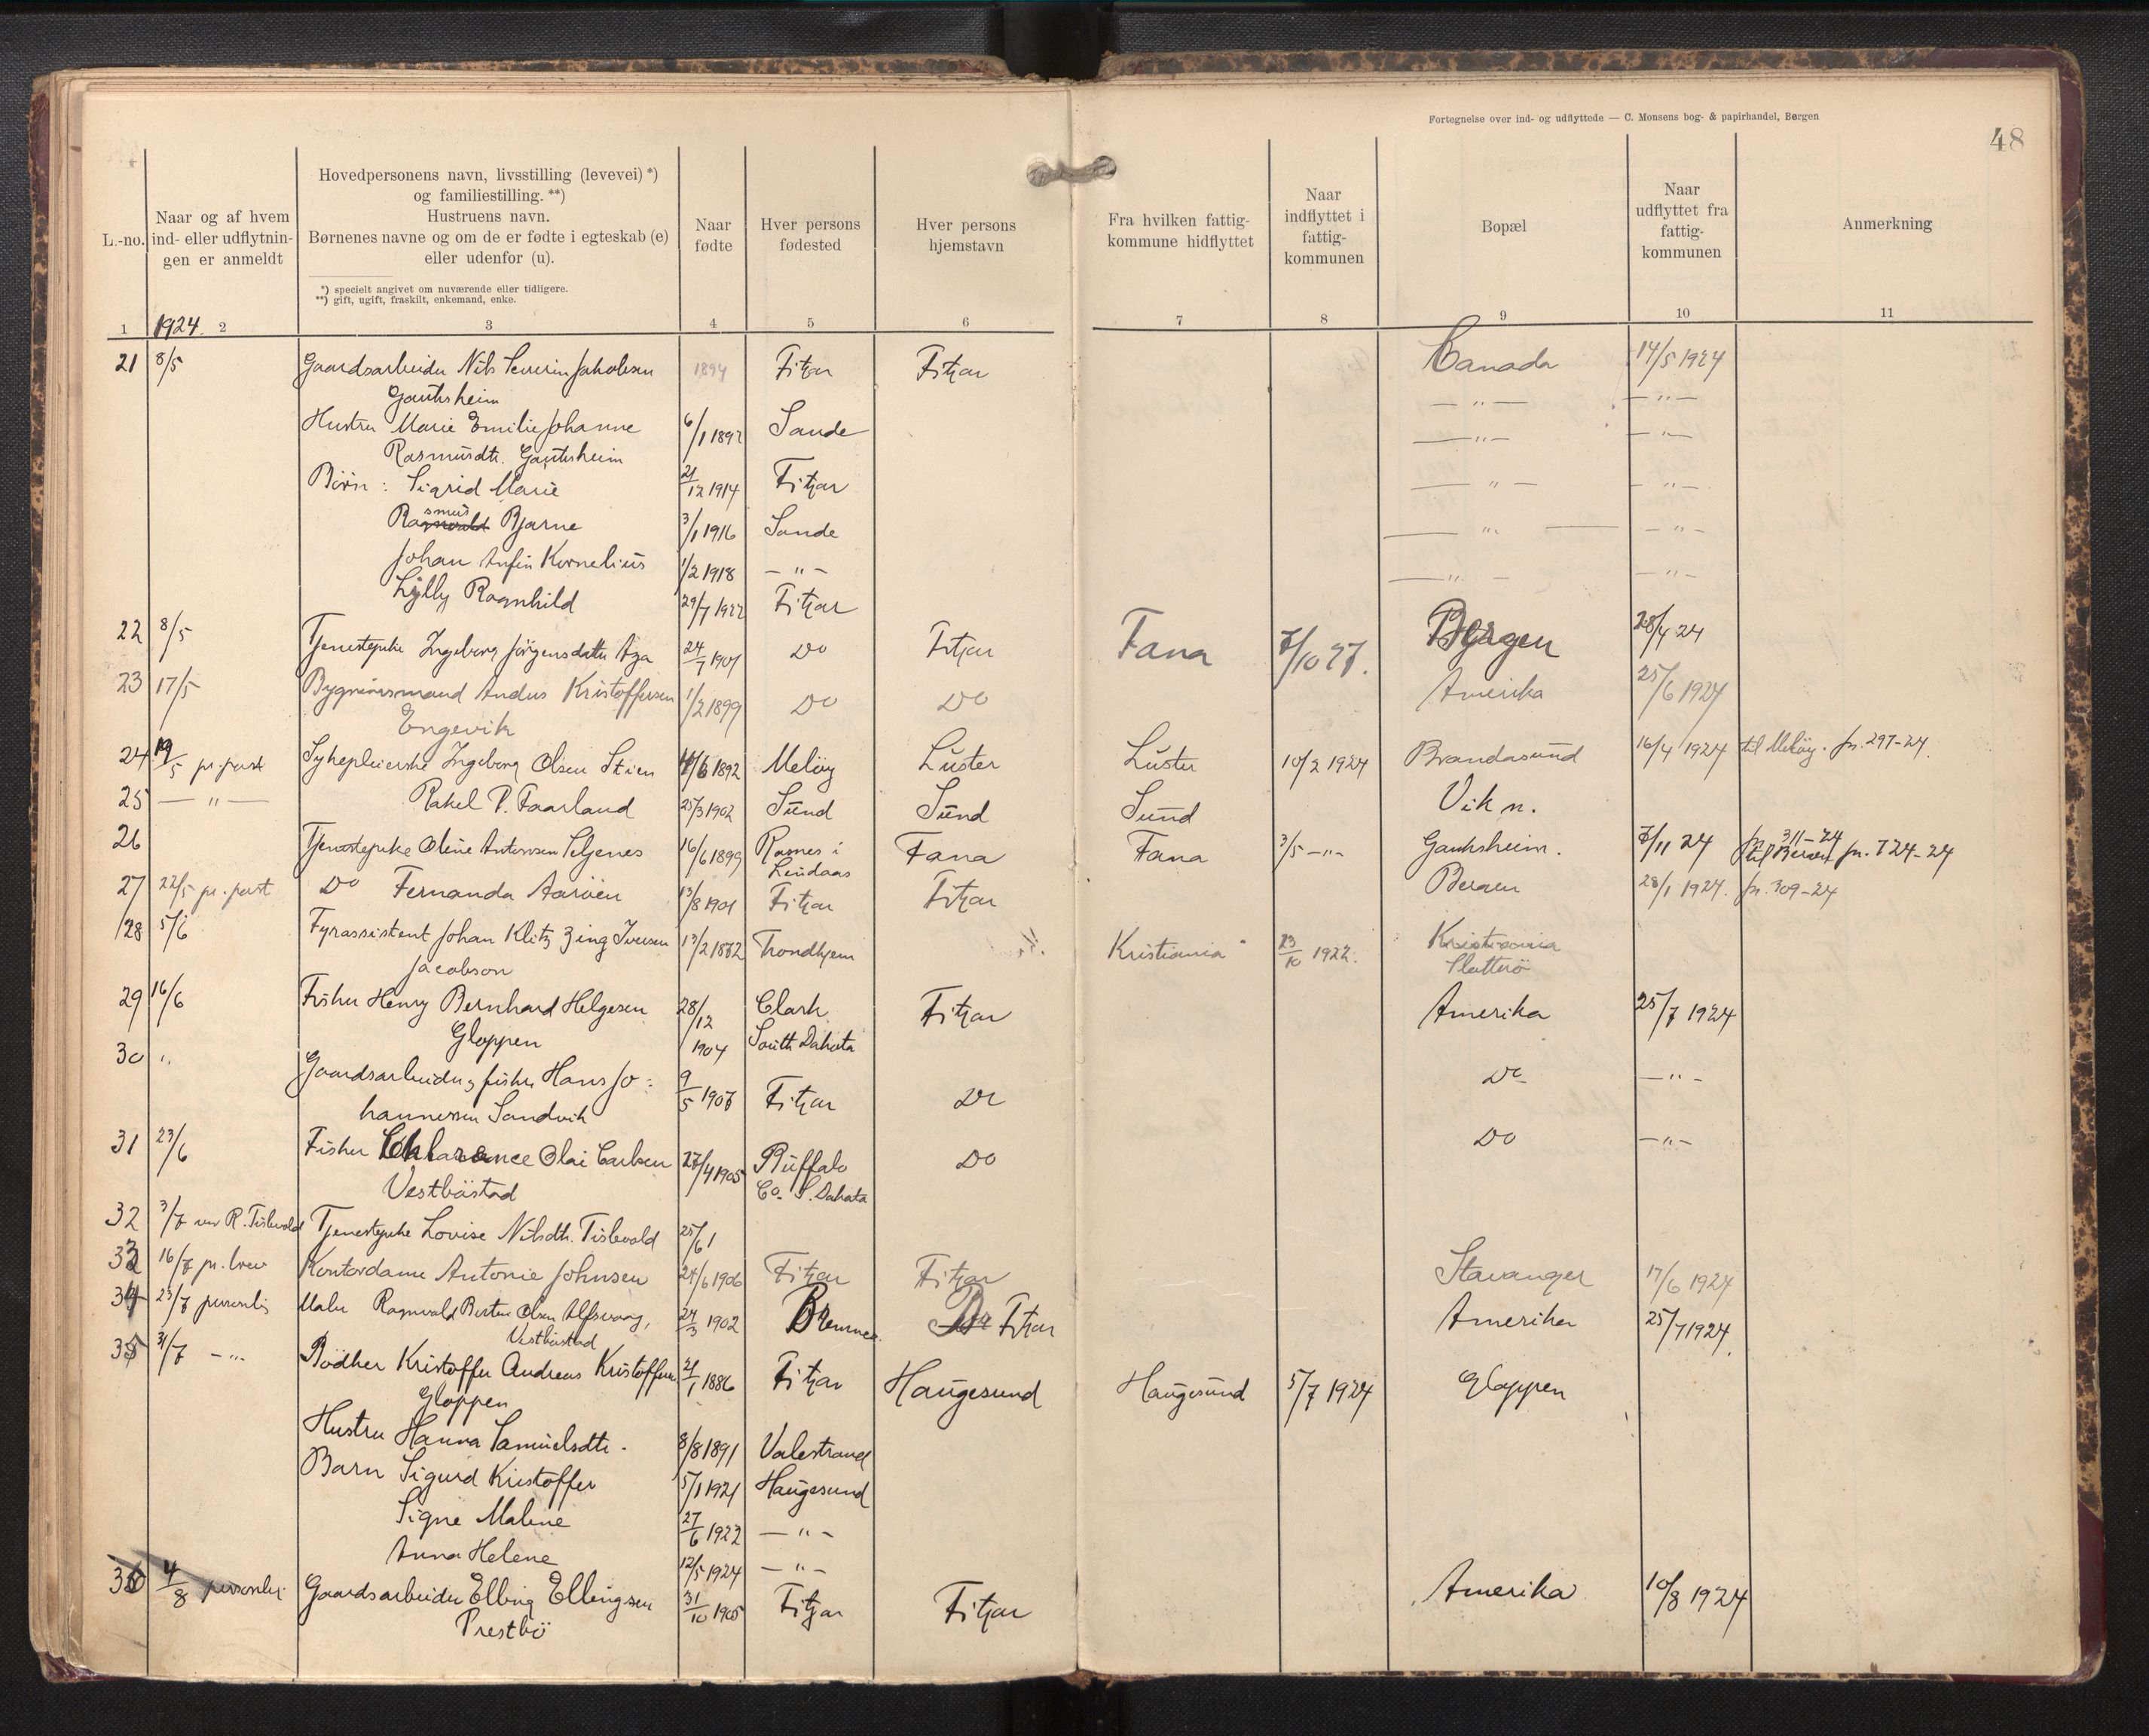 Fortegnelse over ind- og udflyttede — C. Monsens bog- & papirhandel, Bergen
48
L.-no.
Naar og af hvem
ind- eller udflytnin-
gen er anmeldt
Hovedpersonens navn, livsstilling (levevei) *)
og familiestilling. **)
Hustruens navn.
Børnenes navne og om de er fødte i egteskab (e)
eller udenfor (u).
*) specielt angivet om nuværende eller tidligere.
**) gift, ugift, fraskilt, enkemand, enke.
Naar
fødte
Hver persons
fødested
Hver persons
hjemstavn
Fra hvilken fattig-
kommune hidflyttet
Naar
indflyttet i
fattig-
kommunen
Bopæl
Naar
udflyttet fra
fattig-
kommunen
Anmerkning
1 1924. 2 3 4 5 6 7 8 9 10 11
21 8/5 Gaardsarbeider Nils Severin Jakobsen 1894 Fitjar Fitjar Canada 14/5 1924
Gautesheim — " — — " —
Hustru Marie Emilie Johanne 6/1 1892 Sande — " — — " —
Rasmusdtr. Gautesheim
Børn : Sigrid Marie 21/12 1914 Fitjar — " — — " —
Rasmus Bjarne 3/1 1916 Sande — " — — " —
Johan Anfin Kornelius 1/2 1918 — " — — " — — " —
Lylly Ragnhild 29/7 1922 Fitjar
22 8/5 Tjenestepike Ingeborg Jörgensdatter Aga 24/7 1901 Do Fitjar Fana 7/10 27. Bergen 28/4 24
23 17/5 Bygningsmand Anders Kristoffersen 1/2 1899 Do Do Amerika 25/6 1924
Engevik
24 19/5 pr. post Sykepleierske Ingeborg Olsen Stien 4/6 1892 Meløy Luster Luster 10/2 1924 Brandasund 16/4 1924 til Meløy. jn. 297-24
25 — " — Rakel P. Faarland 25/3 1902 Sund Sund Sund Vik n.
26 Tjenestepike Oline Antonsen Seljenes 16/6 1899 Rosnes i Fana Fana 3/5 — " — Gautesheim. 7/11 24 jn. 311-24
Lindaas til Bergen jn. 724-24
27 22/5 pr. post Do Fernanda Aarøen 13/8 1901 Fitjar Fitjar Bergen 28/1 1924. jn. 309-24
28 5/6 Fyrassistent Johan Klitz Zing Iversen 13/2 1862 Trondhjem Kristiania 23/10 1922. Kristiania
Jacobson Slatterö
29 16/6 Fisker Henry Bernhard Helgesen 28/12 1904 Clark Fitjar Amerika 25/7 1924
Gloppen South Dakota
30 " Gaardsarbeider, fisker Hans Jo- 9/5 1907 Fitjar Do Do — " —
hannessen Sandvik
31 23/6 Fisker Chlarence Olai Carlsen 27/4 1905 Buffalo Do Do — " —
Vestböstad Co. S. Dakota
32 3/7 ved R. Tislevold Tjenestepike Lovise Nilsdtr. Tislevold 25/6 1
33 16/7 pr. brev Kontordame Antonie Johnsen 24/6 1906 Fitjar Fitjar Stavanger 17/6 1924
34 23/7 personlig Maler Ragnvald Bertin Olsen Alfsvaag, 24/3 1902 Bremnes Fitjar Amerika 25/7 1924.
Vestbostad
35 31/7 — " Bødker Kristoffer Andreas Kristoffersen 21/1 1886 Fitjar Haugesund Haugesund 5/7 1924 Gloppen
Gloppen
Hustru Hanna Samuelsdtr. 8/8 1891 Valestrand
Barn Sigurd Kristoffer 5/1 1921 Haugesund
Signe Malene 27/6 1922 — " —
Anna Helene 12/5 1924 — " —
36 4/8 personlig Gaardsarbeider Elling Ellingsen 31/10 1905 Fitjar Fitjar Amerika 10/8 1924
Prestbö